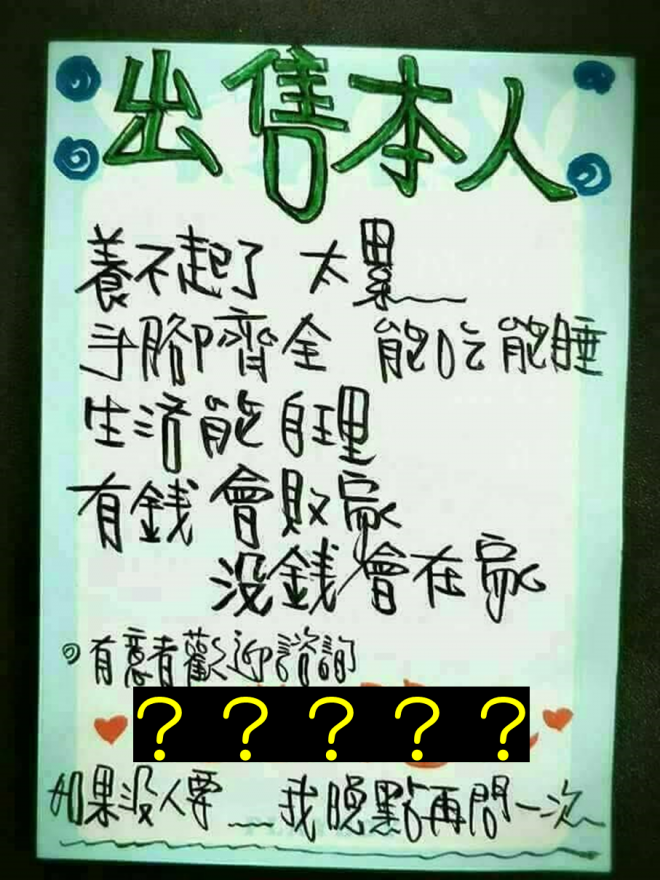 出售本人
養不起了 太累
手腳齊全 能吃能睡
生活能自理
有錢會敗家
沒錢會在家
有意者歡迎諮詢
？？？？？
如果沒人要__我晚點再問一次